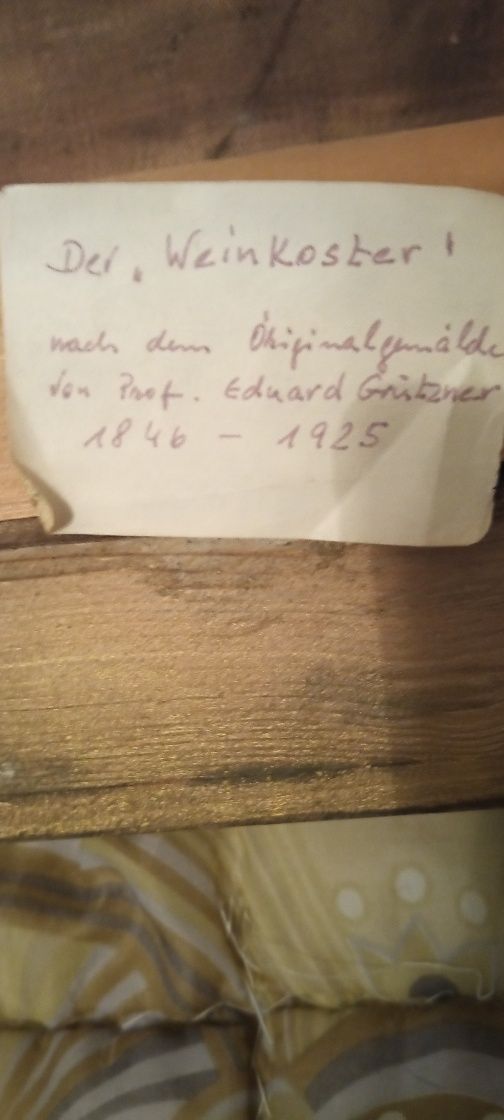 Der „Weinkoster'
nach dem Originalgemälde
von Prof. Eduard Grützner
1846 - 1925